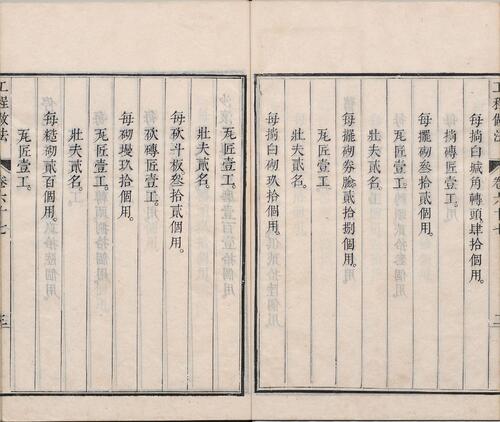 工程做法 卷六十七 二
每白城角轉頭肆拾個用。
磚匠壹工。
每擺砌拾個用。
瓦匠壹工。
壯夫貳名。
每擺砌券臉貳拾捌個用。
瓦匠壹工。
壯夫貳名。
每白砌玖拾個用。
瓦匠壹工。
壯夫貳名。
每砍斗板叁拾貳個用。
砍磚匠壹工。
每砌墁玖拾個用。
瓦匠壹工。
壯夫貳名。
每糙砌貳百個用。
瓦匠壹工。
工程做法 卷六十七 三